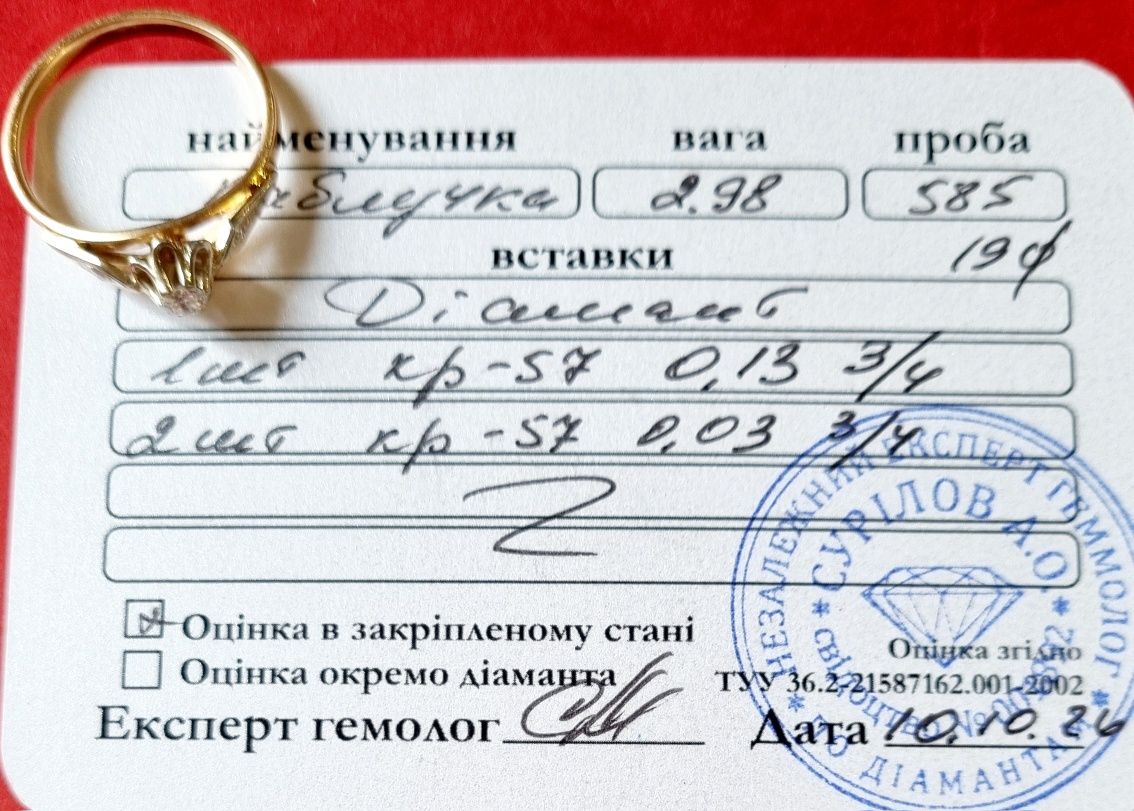 найменування вага проба
каблучка 2.98 585
вставки 19ф
Діамант
1 шт кр-57 0,13 3/4
2 шт кр-57 0,03 3/4
Оцінка в закріпленому стані
Оцінка окремо діаманта
Оцінка згідно
ТУУ 36.2-21587162.001-2002
Експерт гемолог Дата 10.10.26
* НЕЗАЛЕЖНИЙ ЕКСПЕРТ ГЕММОЛОГ *
ПО ДІАМАНТАМ
* СУРІЛОВ А.О. *